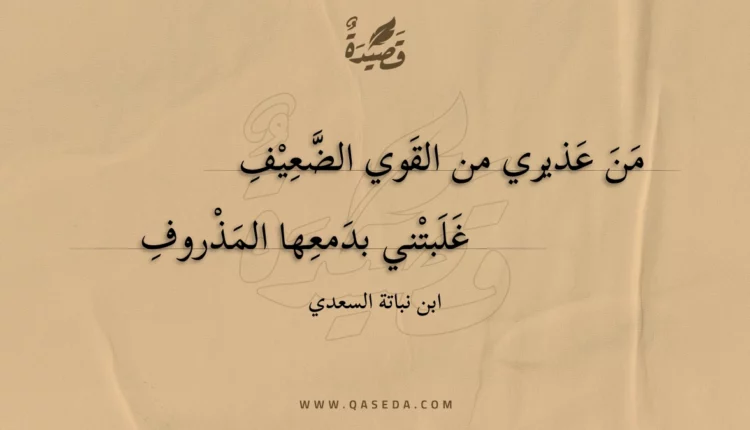 قَصِيْدَةٌ
مَنَ عَذيرِي من القَوي الضَّعِيْفِ
غَلَبتْني بدَمعِها المَذْروفِ
ابن نباتة السعدي
WWW.QASEDA.COM